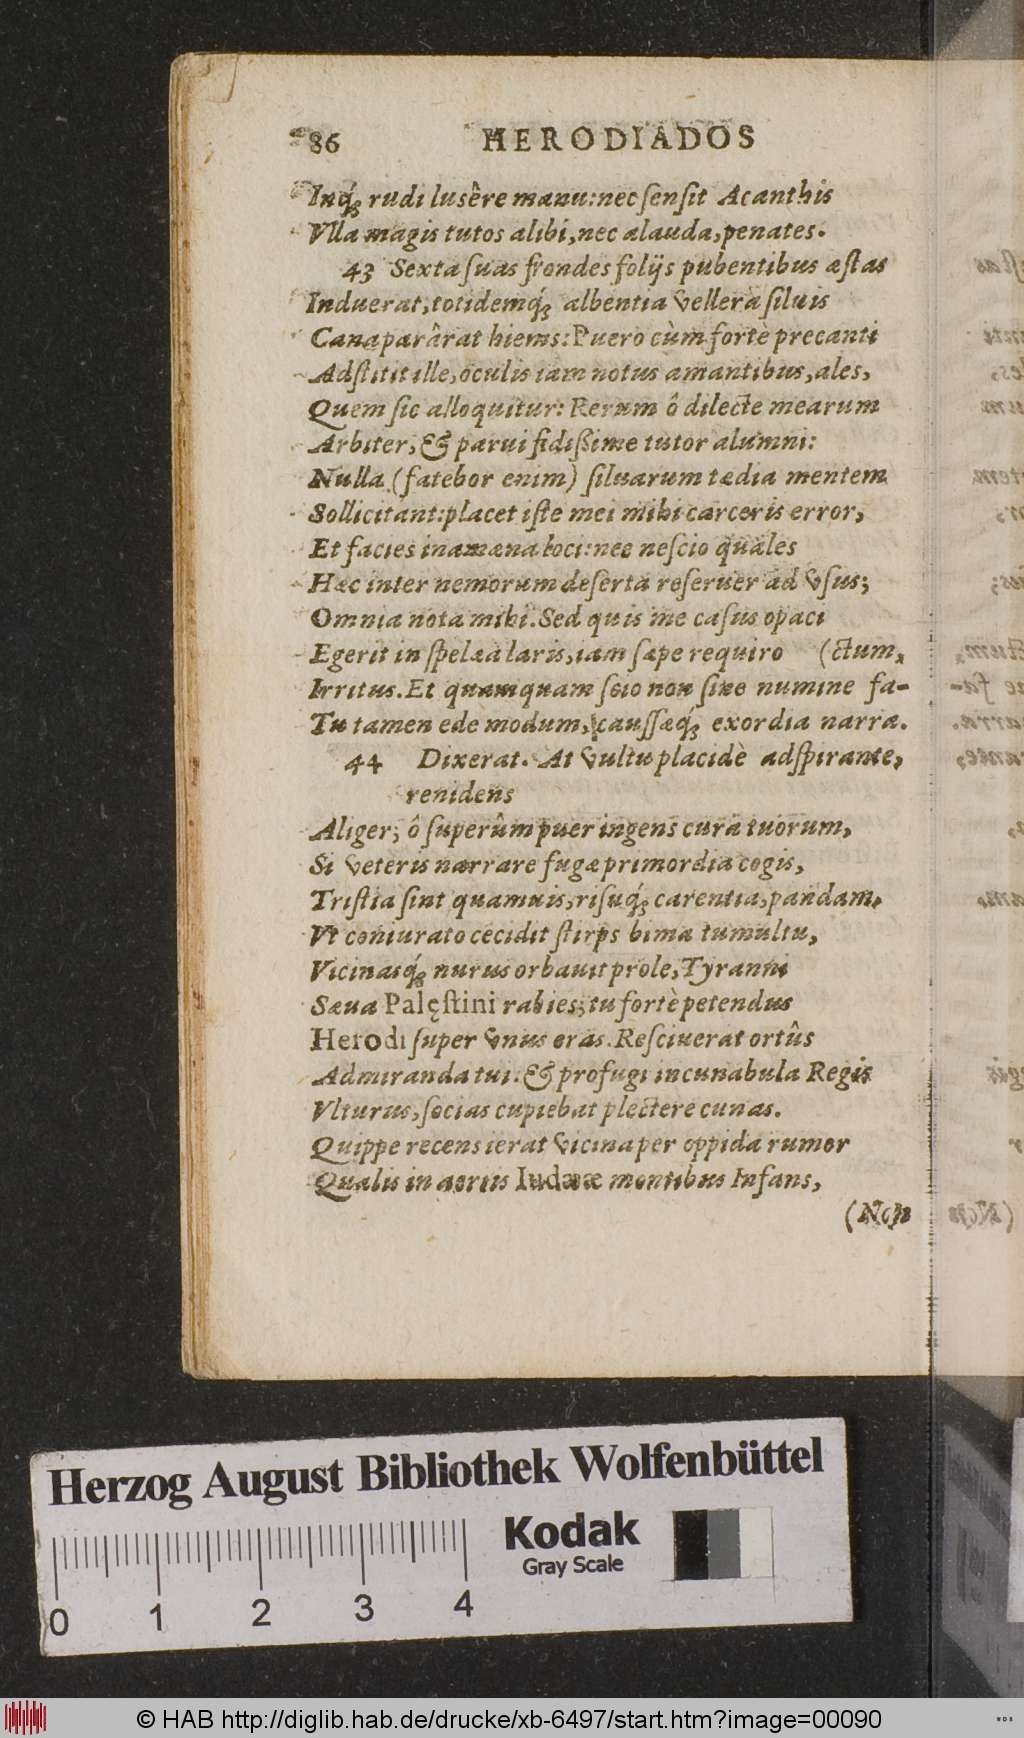 86 HERODIADOS
Inq́; rudi lusêre manu: nec sensit Acanthis
Vlla magis tutos alibi, nec alauda, penates.
43 Sexta suas frondes folijs pubentibus æstas
Induerat, totidemq́; albentia vellera siluis
Cana parârat hiems: Puero cùm fortè precanti
Adstitit ille, oculis iam notus amantibus, ales,
Quem sic alloquitur: Rerum ô dilecte mearum
Arbiter, & parui fidißime tutor alumni:
Nulla (fatebor enim) siluarum tædia mentem
Sollicitant: placet iste mei mihi carceris error,
Et facies inamæna loci: nec nescio quales
Hæc inter nemorum deserta reseruer ad vsus;
Omnia nota mihi. Sed quis me casus opaci
Egerit in spelæa laris, iam sæpe requiro (ctum,
Irritus. Et quamquam scio non sine numine fa-
Tu tamen ede modum, caussæq́; exordia narra.
44 Dixerat. At vultu placidè adspirante,
renidens
Aliger; ô superûm puer ingens cura tuorum,
Si veteris narrare fugæ primordia cogis,
Tristia sint quamuis, risuq́; carentia, pandam.
Vt coniurato cecidit stirps bima tumultu,
Vicinasq́; nurus orbauit prole, Tyranni
Sæua Palęstini rabies; tu fortè petendus
Herodi super vnus eras. Resciuerat ortûs
Admiranda tui: & profugi incunabula Regis
Vlturus, socias cupiebat plectere cunas.
Quippe recens ierat vicina per oppida rumor
Qualis in aeriis Iudææ montibus Infans,
(Non
Herzog August Bibliothek Wolfenbüttel
Kodak
Gray Scale
0 1 2 3 4
© HAB http://diglib.hab.de/drucke/xb-6497/start.htm?image=00090